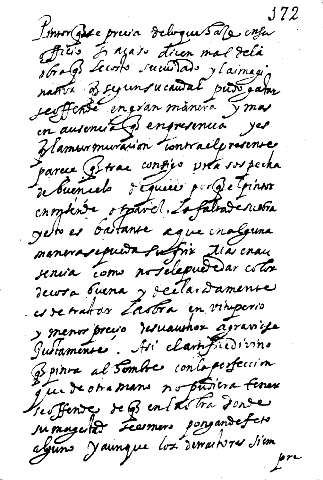 372
Pintor q̃ se precia de lo que haze en su
officio si a caso dicen mal de la
obra q̃ le costo su cuidado y la imagi
nativa q̃ segun su caudal pudo gastar
se offende en gran manera y mas
en ausencia q̃ en presencia y es
q̃ la murmuracion contra el presente
parece q̃ trae consigo una sospecha
de buen celo de querer por q̃ el pintor
enmiende la falta de su obra
y esto es bastante a que en alguna
manera se pueda sufrir Mas en au
sencia como no se le puede dar color
de cosa buena y declaradamente
es detraer la obra en vituperio
y menos precio de su author agraviase
justamente. Asi el artifice divino
q̃ pinta al hombre con la perfeccion
que de otra mano no pudiera tener
se offende de q̃ en la obra donde
su magestad se esmero pongan defecto
alguno y aunque los detractores siem
pre